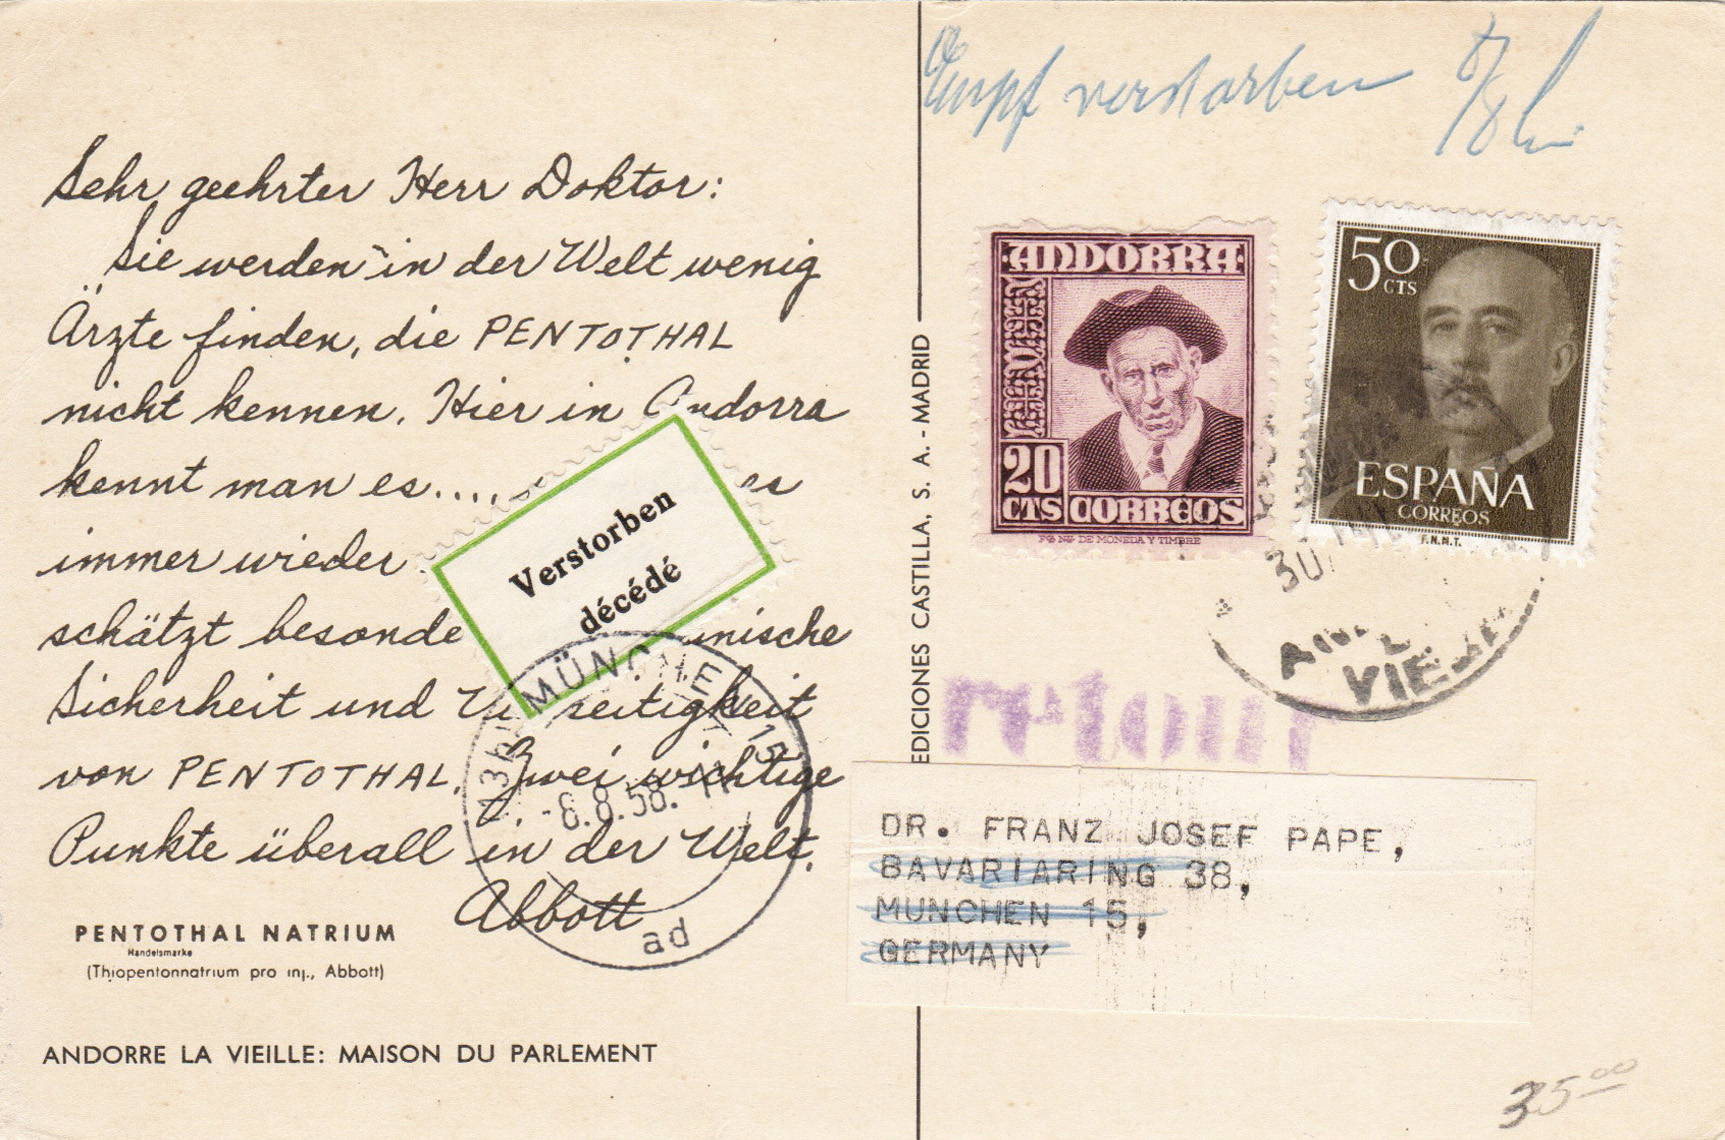 Sehr geehrter Herr Doktor:
Sie werden in der Welt wenig
Ärzte finden, die PENTOTHAL
nicht kennen. Hier in Andorra
kennt man es....,
immer wieder
schätzt besonde
Sicherheit und seitigkeit
von PENTOTHAL. Zwei wichtige
Punkte überall in der Welt.
Abbott
Verstorben
décédé
MÜNCHEN 15
-8.8.58.
ad
PENTOTHAL NATRIUM
Handelsmarke
(Thiopentonnatrium pro inj., Abbott)
ANDORRE LA VIEILLE: MAISON DU PARLEMENT
EDICIONES CASTILLA, S. A. - MADRID
Empf verstorben
ANDORRA
20
CTS CORREOS
FCA. NAL. DE MONEDA Y TIMBRE
50
CTS
ESPAÑA
CORREOS
F.N.M.T.
30
DR. FRANZ JOSEF PAPE,
BAVARIARING 38,
MUNCHEN 15,
GERMANY
35 00